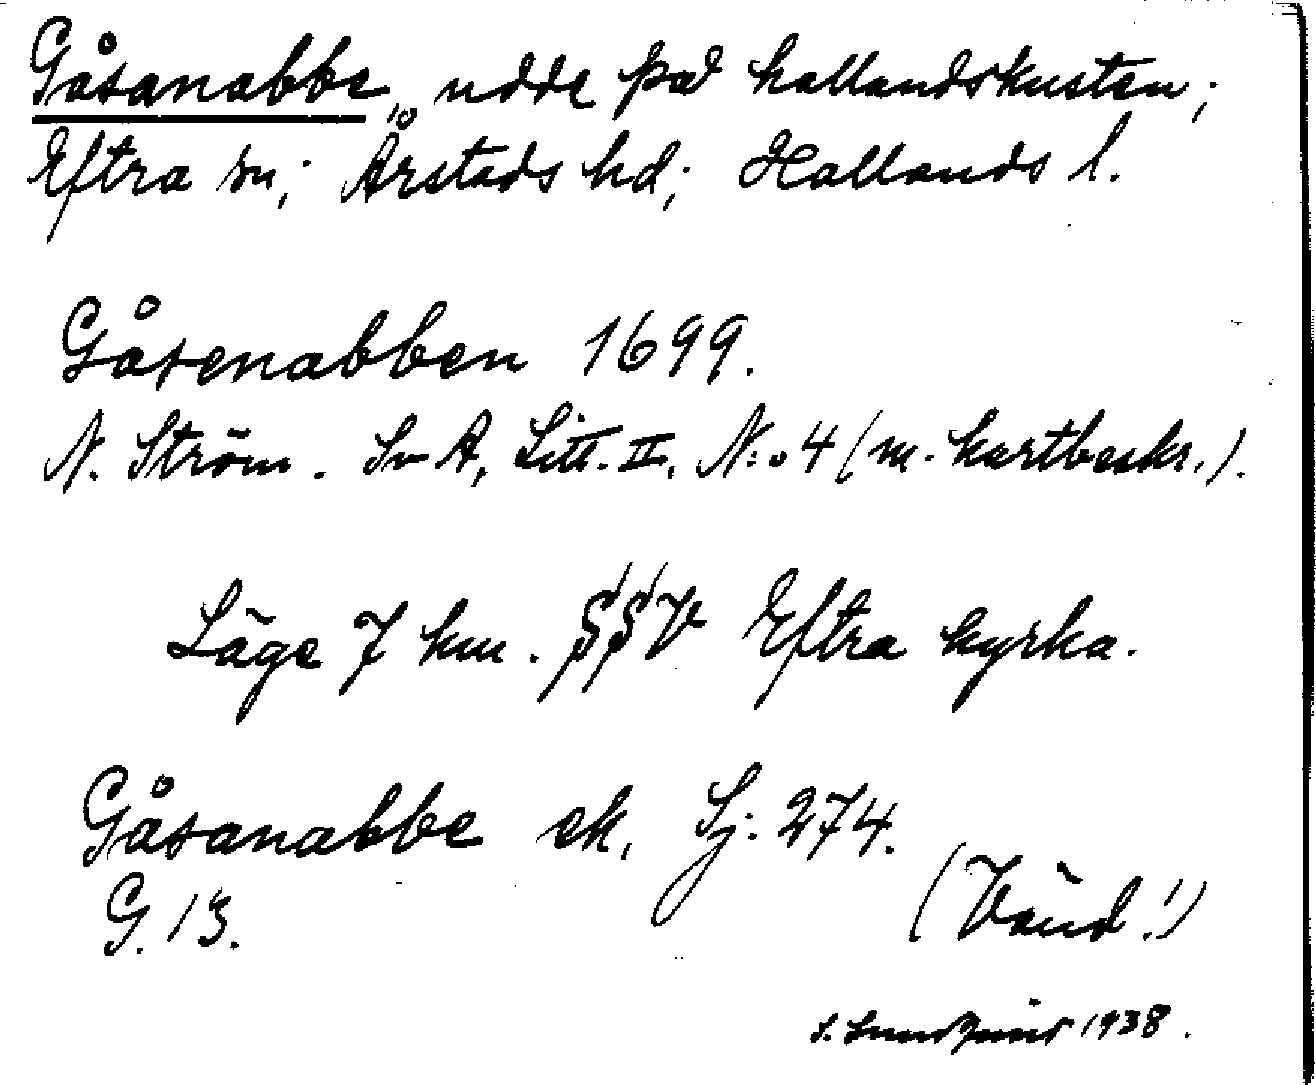 Gåsanabbe, udde på hallandskusten;
Eftra sn; Årstads hd; Hallands l.
Gåsenabben 1699.
N. Ström. Sv A, Litt. II, N:o 4 (m. kartbeskr.).
Läge 7 km. SSV Eftra kyrka.
Gåsanabbe ek. Sj. 274.
G. 13.
(Vänd!)
S. Lundquist 1938.